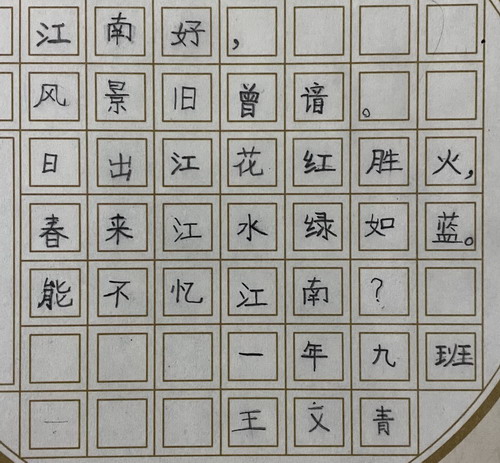 江南好，
风景旧曾谙。
日出江花红胜火，
春来江水绿如蓝。
能不忆江南？
一年九班
王文青